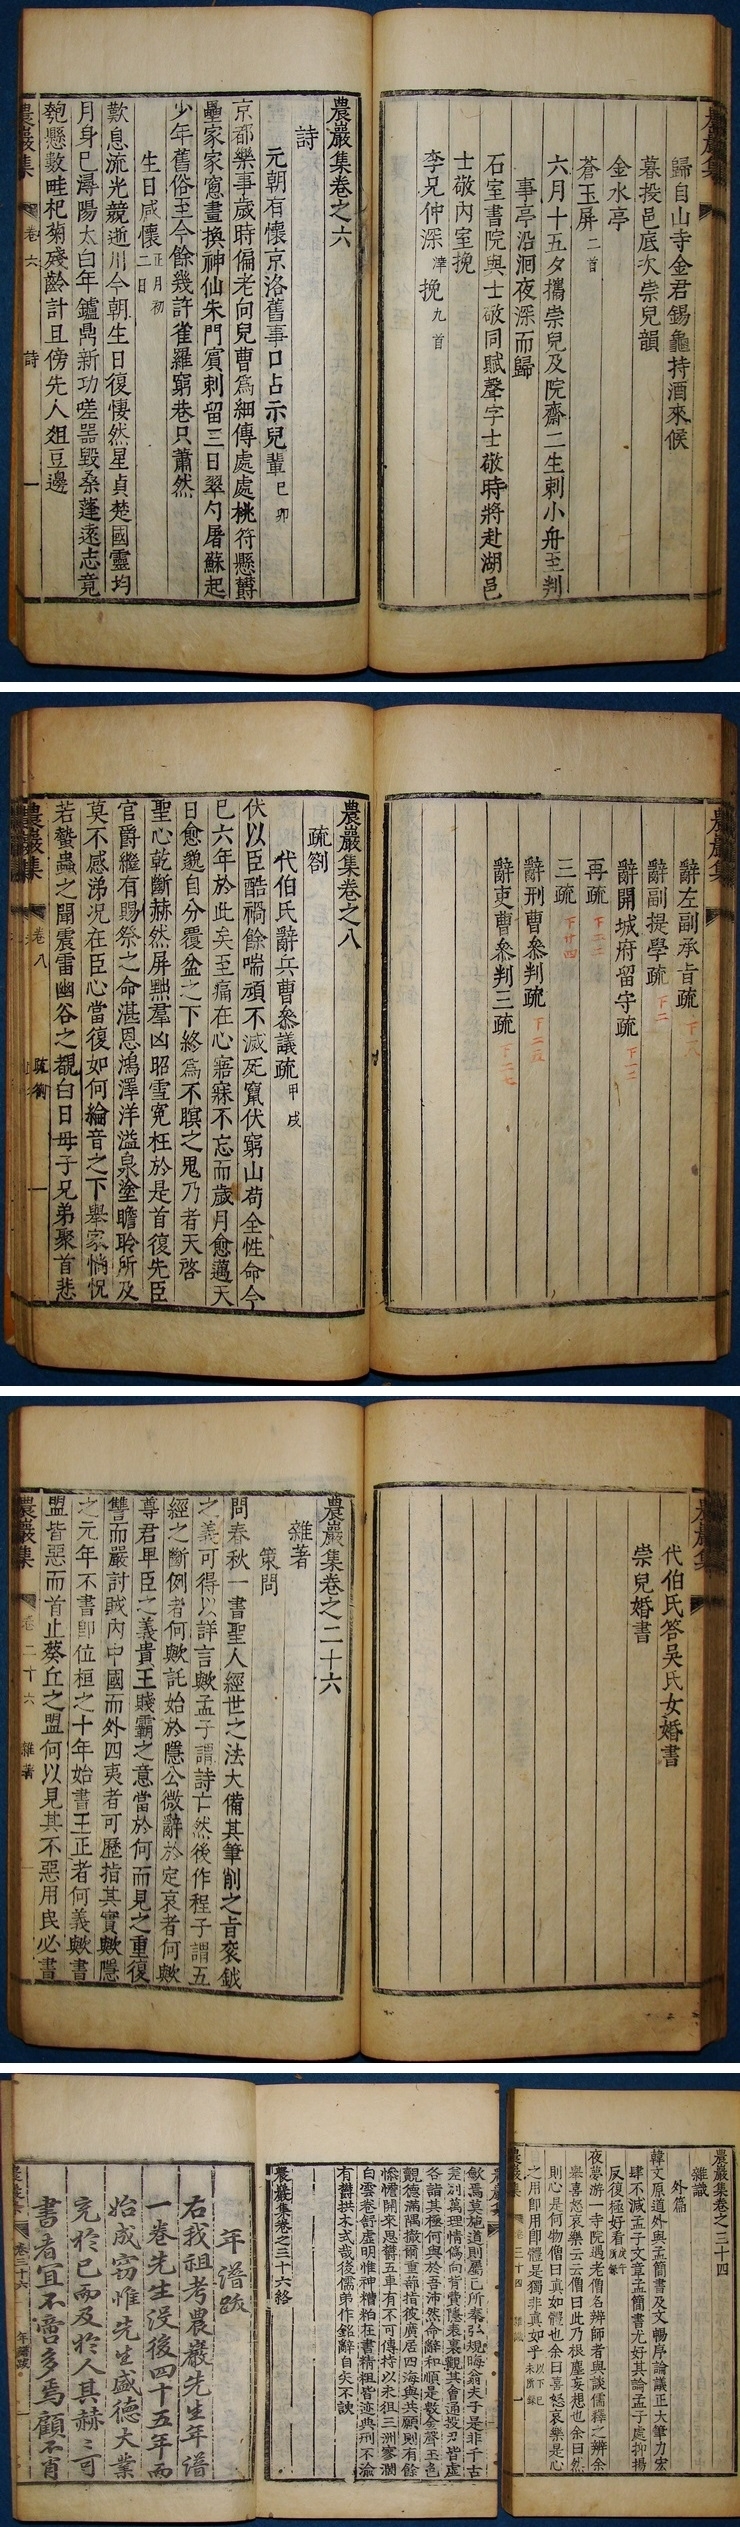 農巖集
歸自山寺金君錫龜持酒來候
暮投邑底次崇兒韻
金水亭
蒼玉屏二首
六月十五夕攜崇兒及院齋二生剌小舟至判
事亭沿洄夜深而歸
石室書院與士敬同賦聲字士敬時將赴湖邑
士敬內室挽
李兄仲深㴐挽九首
農巖集卷之六
詩
元朝有懷京洛舊事口占示兒輩己卯
京都樂事歲時偏老向兒曹爲細傳處處桃符懸欝
壘家家窓畫換神仙朱門賔刺留三日翠勺屠蘇起
少年舊俗至今餘幾許雀羅窮巷只蕭然
生日感懷正月初二日
歎息流光競逝川今朝生日復悽然星貞楚國靈均
月身巳潯陽太白年鑪鼎新功嗟器毀桑蓬遠志竟
匏懸數畦杞菊殘齡計且傍先人俎豆邊
農巖集 卷六 詩 一
農巖集
辭左副承旨疏
辭副提學疏
辭開城府留守疏
再疏
三疏
辭刑曹參判疏
辭吏曹參判三疏
農巖集卷之八
疏劄
代伯氏辭兵曹參議疏甲戌
伏以臣酷禍餘喘頑不滅死竄伏窮山苟全性命今
巳六年於此矣至痛在心寤寐不忘而歲月愈邁天
日愈邈自分覆盆之下終爲不瞑之鬼乃者天啓
聖心乾斷赫然屏黜羣凶昭雪寃枉於是首復先臣
官爵繼有賜祭之命湛恩鴻澤洋溢泉塗瞻聆所及
莫不感涕況在臣心當復如何綸音之下舉家惝怳
若蟄蟲之聞震雷幽谷之覩白日母子兄弟聚首悲
農巖集 卷八 疏劄 一
農巖集
代伯氏答吳氏女婚書
崇兒婚書
農巖集卷之二十六
雜著
策問
問春秋一書聖人經世之法大備其筆削之旨衮鉞
之義可得以詳言歟孟子謂詩亡然後作程子謂五
經之斷例者何歟託始於隱公微辭於定哀者何歟
尊君卑臣之義貴王賤霸之意當於何而見之重復
讐而嚴討賊內中國而外四夷者可歷指其實歟隱
之元年不書卽位桓之十年始書王正者何義歟書
盟皆惡而首止蔡丘之盟何以見其不惡用民必書
農巖集 卷二十六 雜著
農巖集卷之三十四
雜識
外篇
韓文原道外與孟簡書及文暢序論議正大筆力宏
肆不減孟子文章孟簡書尤好其論孟子處抑揚
反復極好看
夜夢游一寺院遇老僧名辨師者與談儒釋之辨余
舉喜怒哀樂云云僧曰此乃根塵妄想也余曰然
則心是何物僧曰眞如體也余曰喜怒哀樂是心
之用卽用卽體是獨非眞如乎
農巖集 卷三十四 雜識 一
農巖集卷之三十六終
年譜跋
右我祖考農巖先生年譜
一卷先生沒後四十五年而
始成竊惟先生盛德大業
充於己而及於人其赫赫可
書者宜不啻多焉顧不肖
卷三十六 年譜跋